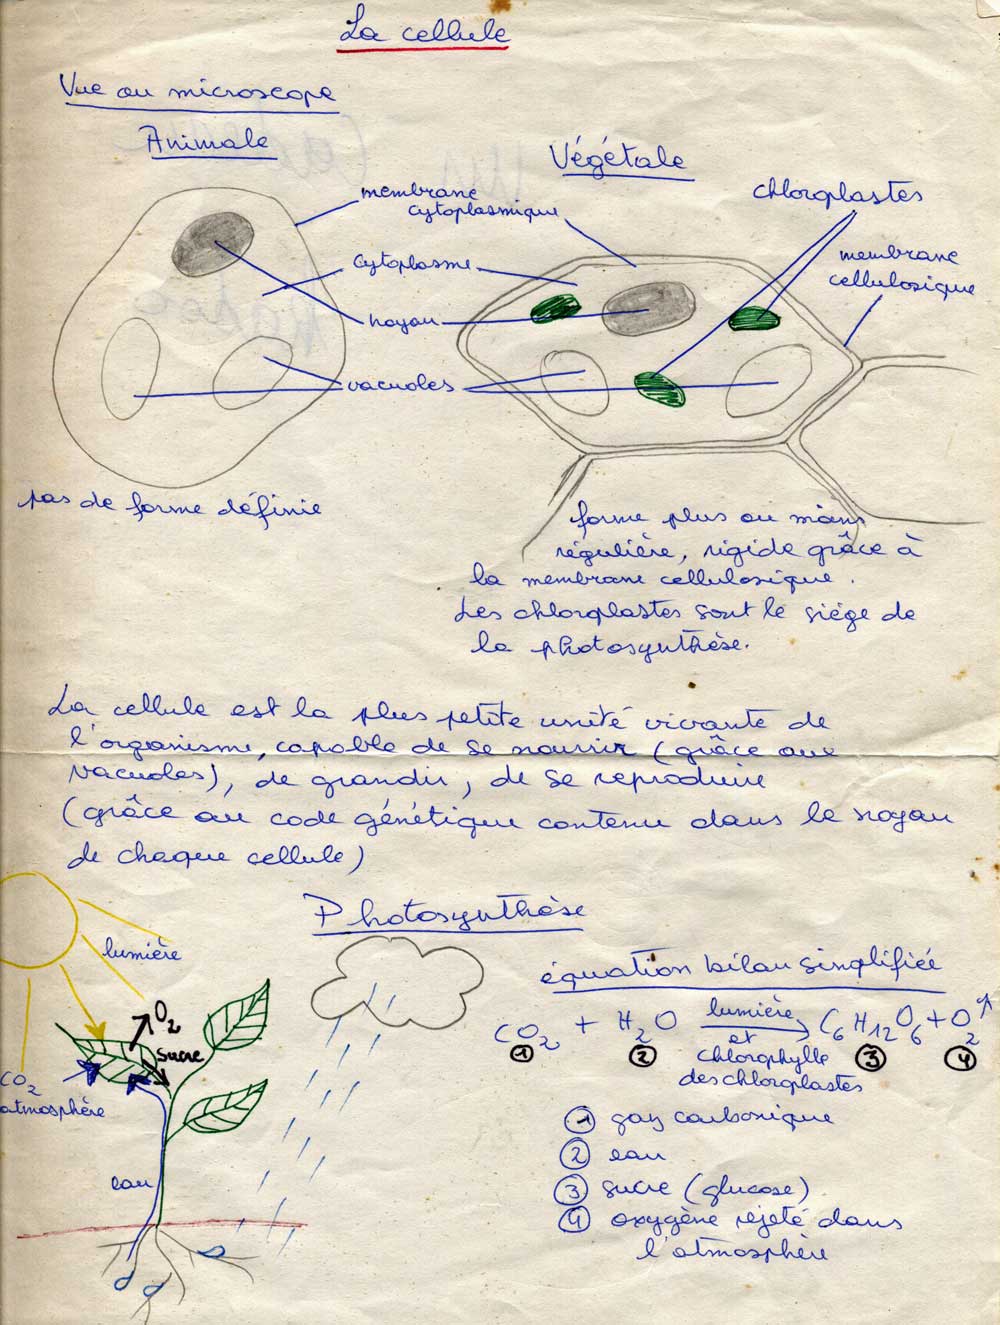 La cellule
Vue au microscope
Animale
Végétale
membrane
cytoplasmique
chloroplastes
cytoplasme
membrane
cellulosique
noyau
vacuoles
pas de forme définie
forme plus ou moins
régulière, rigide grâce à
la membrane cellulosique.
Les chloroplastes sont le siége de
la photosynthèse.
La cellule est la plus petite unité vivante de
l'organisme, capable de se nourrir (grâce aux
vacuoles), de grandir, de se reproduire
(grâce au code génétique contenu dans le noyau
de chaque cellule)
Photosynthèse
lumière
O2
sucre
CO2
atmosphère
eau
équation bilan simplifiée
CO2 + H2O lumière → C6H12O6 + O2↑
et
chlorophylle
des chloroplastes
① ② ③ ④
① gaz carbonique
② eau
③ sucre (glucose)
④ oxygène rejeté dans
l'atmosphère